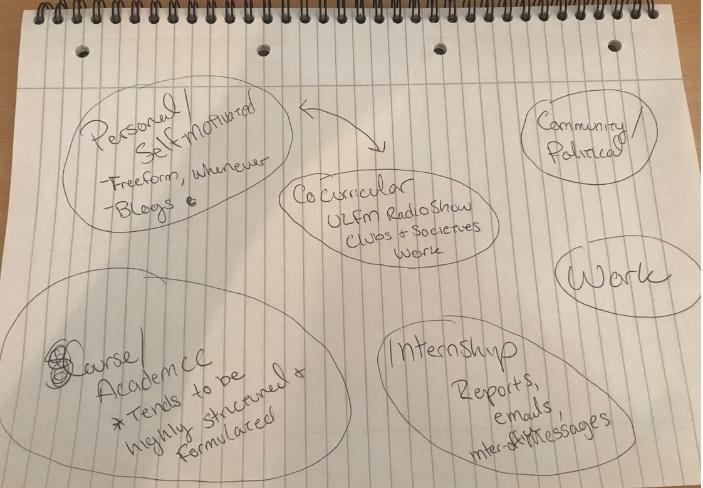 Personal/
Self motivated
-Freeform, whenever
-Blogs
Cocurricular
ULFM Radio Show
Clubs & Societies
Work
Community/
Political
Work
Course/
Academic
*Tends to be
highly structured &
formulated
Internship
Reports,
emails,
inter-office messages